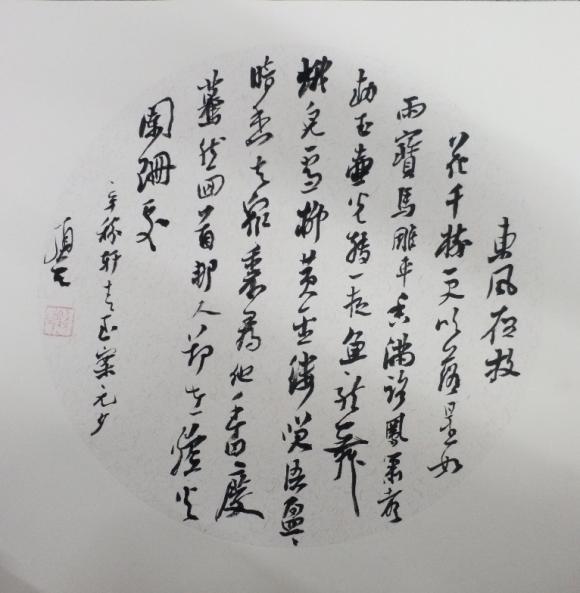 東風夜放
花千樹更吹落星如
雨寶馬雕車香滿路鳳簫聲
動玉壺光轉一夜魚龍舞
蛾兒雪柳黃金縷笑語盈々
暗香去眾裏尋他千百度
驀然回首那人却在燈火
闌珊處
辛稼軒青玉案元夕